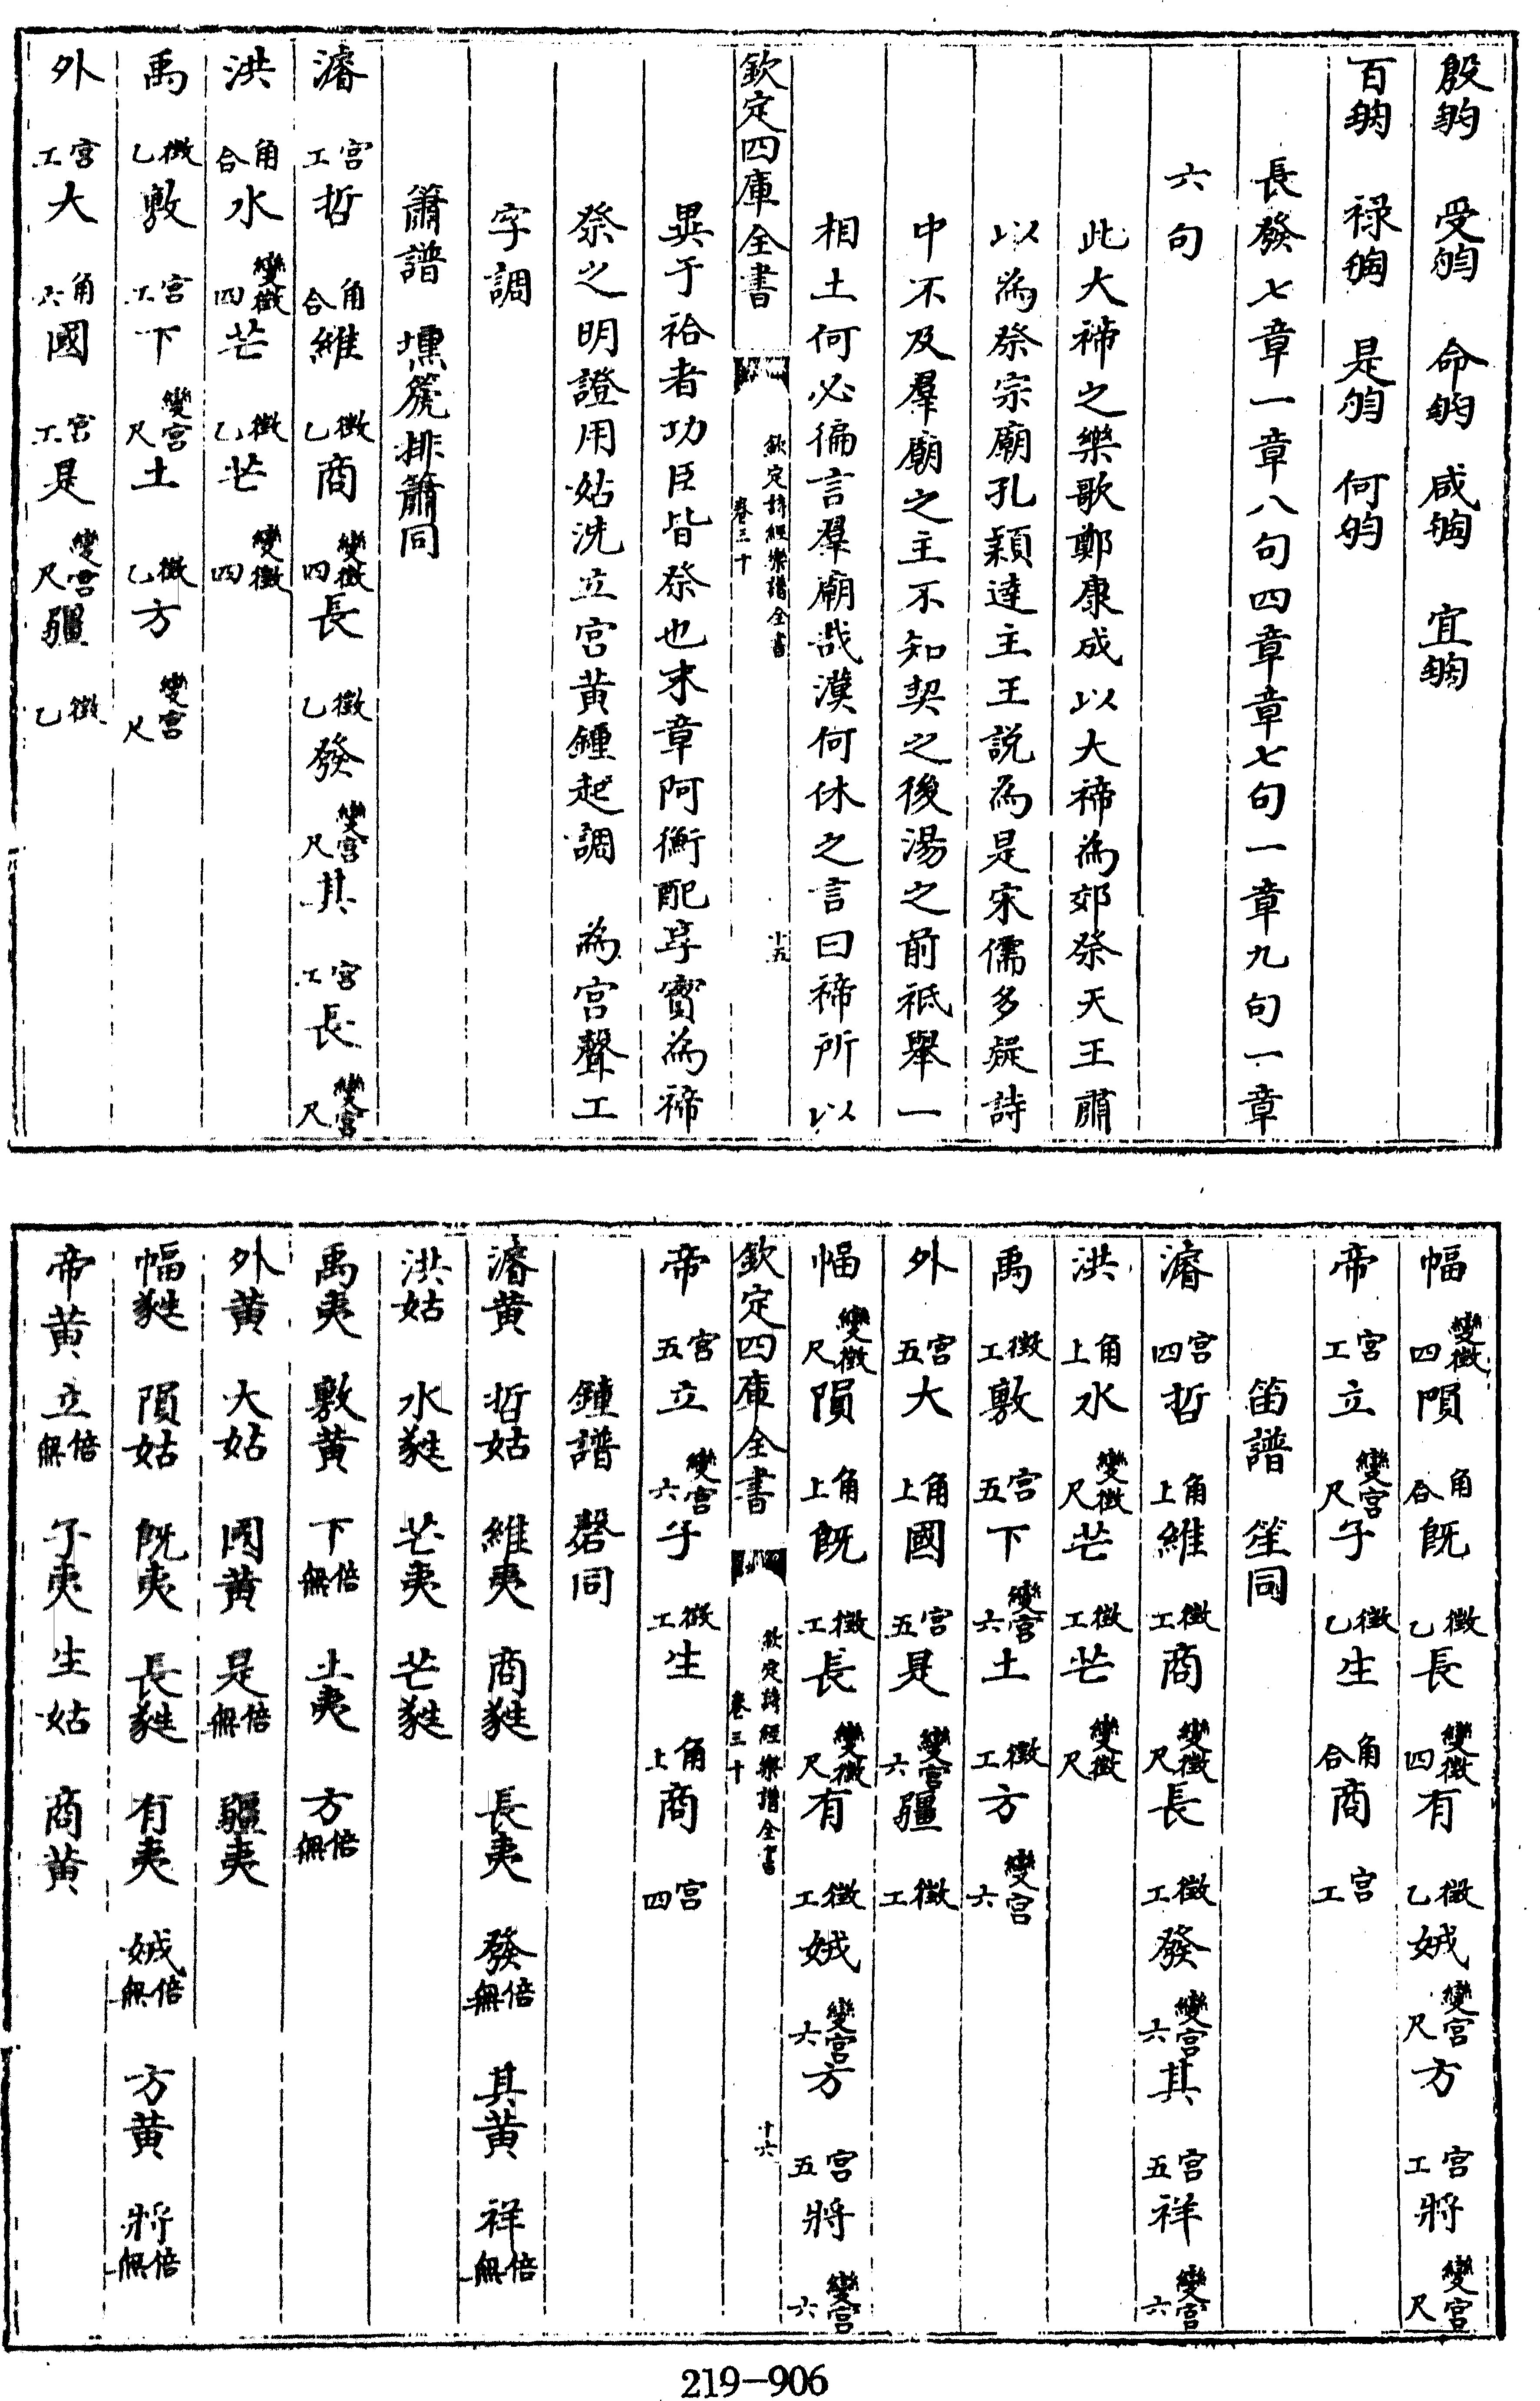 殷 受 命 咸 宜
百 禄 是 何
長發七章一章八句四章章七句一章九句一章
六句
此大禘之樂歌鄭康成以大禘為郊祭天王肅
以為祭宗廟孔穎達主王説為是宋儒多疑詩
中不及羣廟之主不知契之後湯之前祗舉一
相土何必徧言羣廟哉漢何休之言曰禘所以
欽定四庫全書 欽定詩經樂譜全書 卷三十 十五
異于祫者功臣皆祭也末章阿衡配享實為禘
祭之明證用姑洗立宮黃鍾起調 為宮聲工
字調
簫譜 壎篪排簫同
濬宮工 哲角合 維徵乙 商變徵四 長徵乙 發變宮尺 其宮工 長變宮尺
洪角合 水變徵四 芒徵乙 芒變徵四
禹徵乙 敷宮工 下變宮尺 土徵乙 方變宮尺
外宮工 大角六 國宮工 是變宮尺 疆徵乙
幅變徵四 隕角合 既徵乙 長變徵四 有徵乙 娀變宮尺 方宮工 將變宮尺
帝宮工 立變宮尺 子徵乙 生角合 商宮工
笛譜 笙同
濬宮四 哲角上 維徵工 商變徵尺 長徵工 發變宮六 其宮五 祥變宮六
洪角上 水變徵尺 芒徵工 芒變徵尺
禹徵工 敷宮五 下變宮六 土徵工 方變宮六
外宮五 大角上 國宮五 是變宮六 疆徵工
幅變徵尺 隕角上 既徵工 長變徵尺 有徵工 娀變宮六 方宮五 將變宮六
欽定四庫全書 欽定詩經樂譜全書 卷三十 十六
帝宮五 立變宮六 子徵工 生角上 商宮四
鍾譜 磬同
濬黃 哲姑 維夷 商蕤 長夷 發倍無 其黃 祥倍無
洪姑 水蕤 芒夷 芒蕤
禹夷 敷黃 下倍無 土夷 方倍無
外黃 大姑 國黃 是倍無 疆夷
幅蕤 隕姑 既夷 長蕤 有夷 娀倍無 方黃 將倍無
帝黃 立倍無 子夷 生姑 商黃
219-906